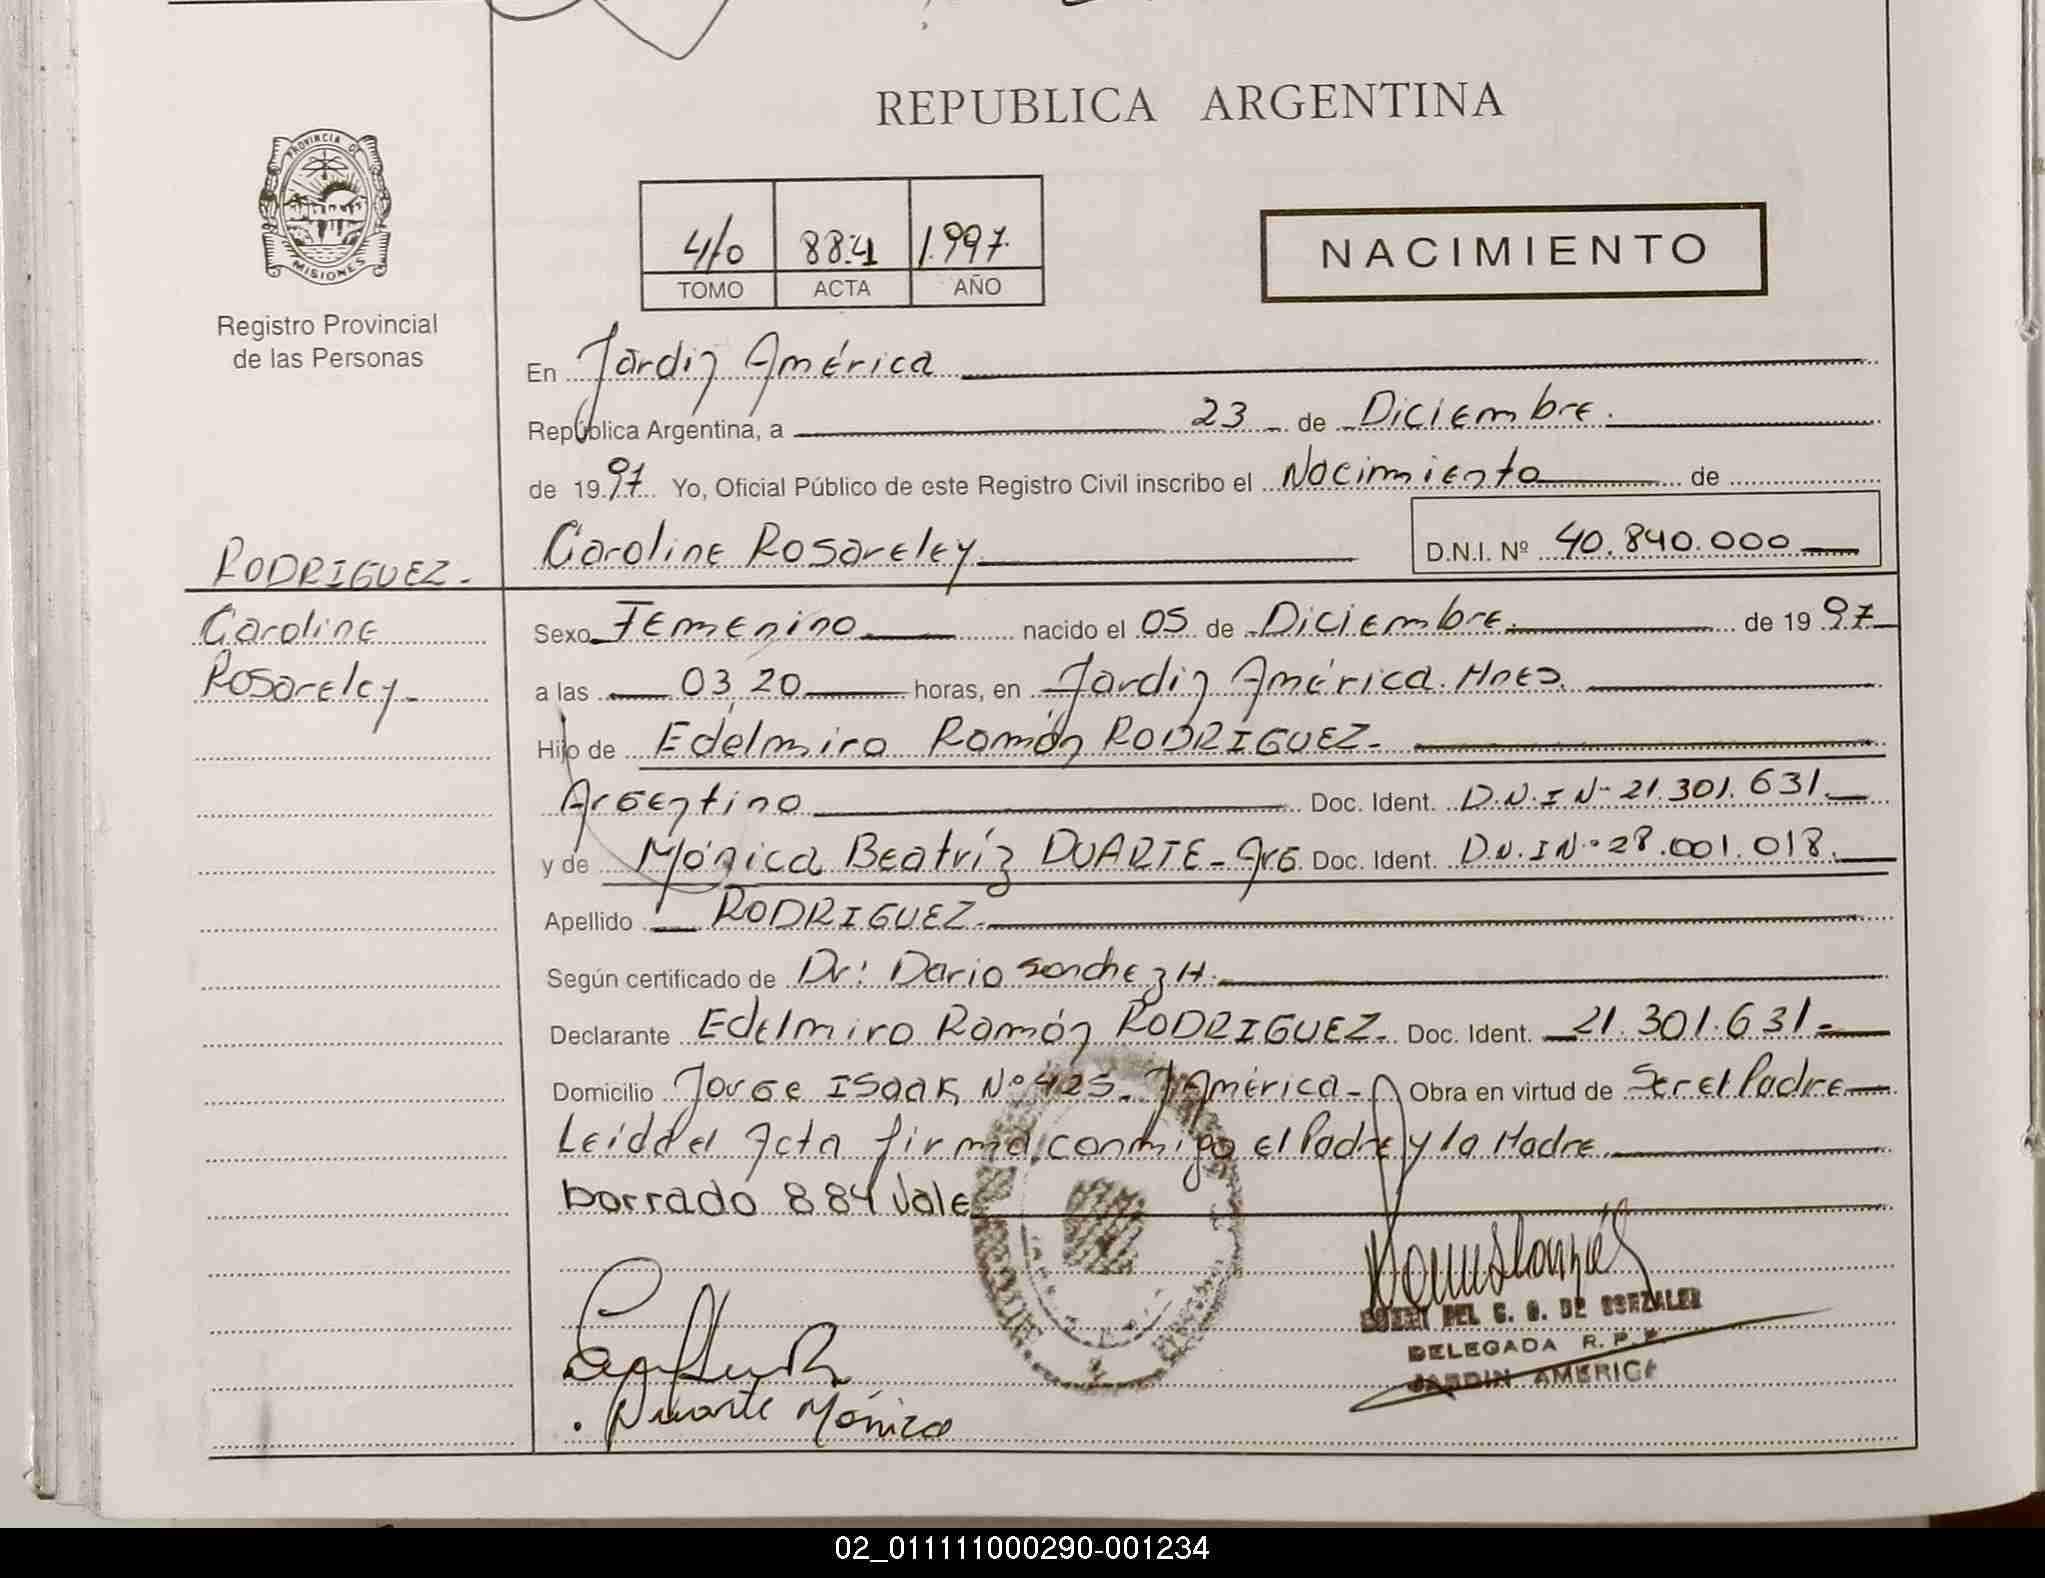 REPUBLICA ARGENTINA
PROVINCIA DE
MISIONES
Registro Provincial
de las Personas
4/0 884 1.997
TOMO ACTA AÑO
NACIMIENTO
En Jardin América
República Argentina, a 23 de Diciembre.
de 19 97 Yo, Oficial Público de este Registro Civil inscribo el Nacimiento de
Caroline Rosareley D.N.I. Nº 40.840.000
RODRIGUEZ.
Caroline
Rosareley
Sexo Femenino nacido el 05 de Diciembre. de 19 97
a las 03,20 horas, en Jardin América. Mnes.
Hijo de Edelmiro Ramón RODRIGUEZ.
Argentino Doc. Ident. D.N.I Nº 21.301.631.
y de Mónica Beatríz DUARTE - Arg. Doc. Ident. D.N.I Nº 28.001.018.
Apellido RODRIGUEZ.
Según certificado de Dr: Dario Sanchez H.
Declarante Edelmiro Ramón RODRIGUEZ. Doc. Ident. 21.301.631.
Domicilio Jorge ISaak Nº 425. J América - Obra en virtud de Ser el Padre
Leída el Acta firma conmigo el Padre y la Madre
borrado 884 Vale
DEL C. G. DE GONZALEZ
DELEGADA R.P.P.
JARDIN AMERICA
Duarte Mónica
02_011111000290-001234